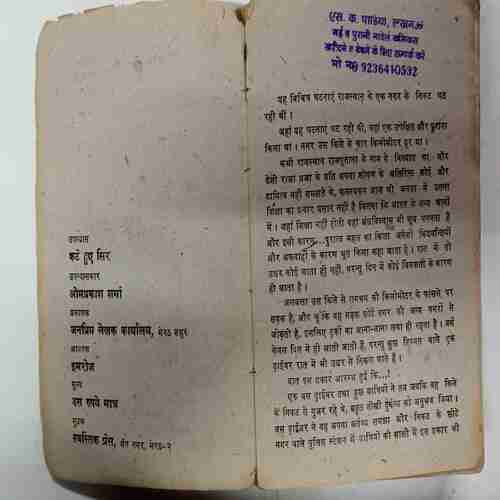 उपन्यास
कटे हुए सिर
उपन्यासकार
ओमप्रकाश शर्मा
प्रकाशक
जनप्रिय लेखक कार्यालय, मेरठ शहर
आवरण
इमरोज
मूल्य
दस रुपये मात्र
मुद्रक
स्वस्तिक प्रेस, मेरठ-२
एस. के. पाडिया, लखनऊ
नई व पुरानी नावेल कामिक्स
खरीदने व बेचने के लिए सम्पर्क करें
मो० न० 9236410532
यह विचित्र घटनाएं राजस्थान के एक नगर के निकट घट
रही थीं।
जहां यह घटनाएं घट रही थी, वहां एक उपेक्षित और पुराना
किला था। नगर उस किले से चार किलोमीटर दूर था।
कभी राजस्थान राजपूताना के नाम से विख्यात था, और
देसी राजा प्रजा के प्रति अपना शोषण के अतिरिक्त कोई और
दायित्व नहीं समझते थे, फलस्वरूप आज भी जनता में उतना
शिक्षा का प्रचार प्रसार नहीं है जितना कि भारत के अन्य भागों
में। जहां शिक्षा नहीं होती वहां अंधविश्वास भी खूब पनपता है
और इसी कारण...पुरातन महत्व का किला अनेकों किंवदन्तियों
और अफवाहों के कारण भूत किला कहा जाता है। रात में तो
उधर कोई जाता ही नहीं, परन्तु दिन में कोई विवशता के कारण
ही जाता है।
अलबत्ता उस किले से लगभग की किलोमीटर के फासले पर
सड़क है, और चूंकि वह सड़क कोई नगर को अन्य नगरों से
जोड़ती है, इसलिए ट्रकों का आना-जाना लगा ही रहता है। बसें
केवल दिन में ही आती जाती हैं, परन्तु कुछ हिम्मत वाले ट्रक
ड्राईवर रात में भी उधर से निकल जाते हैं।
बात इस प्रकार आरम्भ हुई कि...!
एक बस ड्राईवर तथा कुछ यात्रियों ने तब जबकि वह किले
के निकट से गुजर रहे थे, बहुत तीखी दुर्गन्ध को अनुभव किया।
बस ड्राईवर ने यह अपना कर्तव्य समझा और निकट के छोटे
नगर वाले पुलिस स्टेशन में यात्रियों की साक्षी में इस प्रकार की